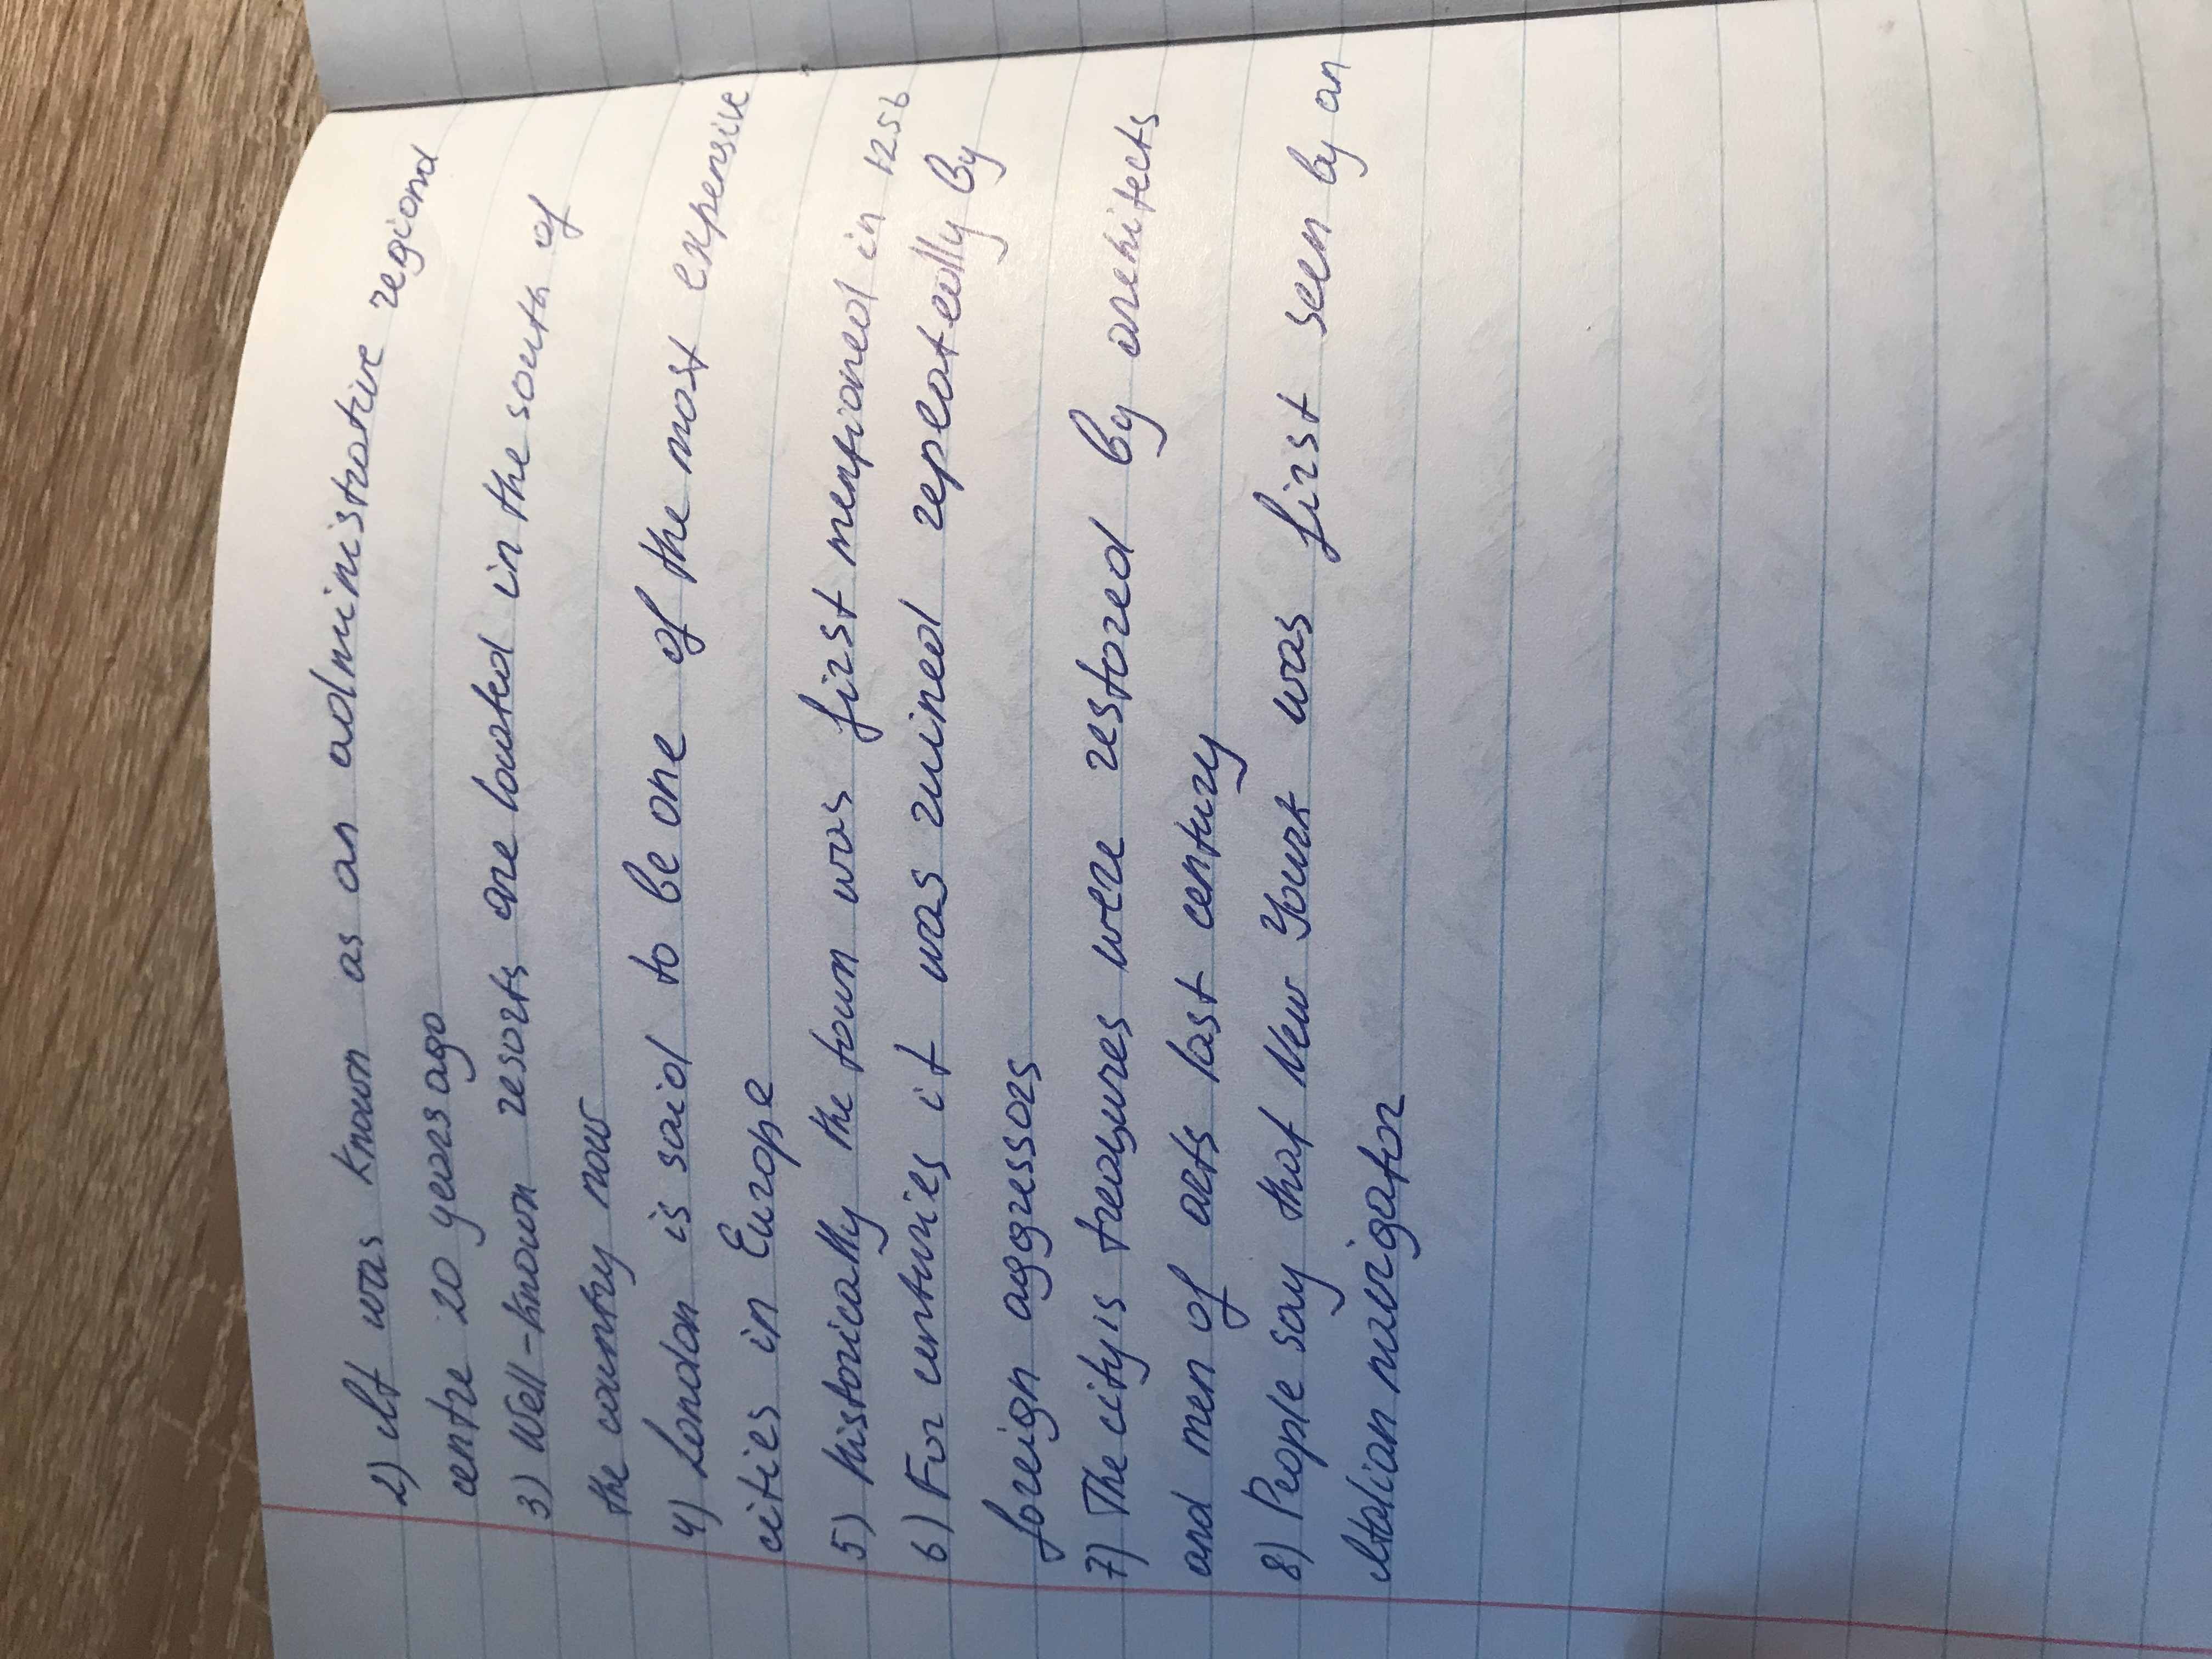 2) It was known as an administrative regiond
centre 20 years ago
3) Well-known resorts are located in the south of
the country now
4) London is said to be one of the most expensive
cities in Europe
5) historically the town was first mentioned in 1256
6) For centuries it was ruined repeatedly by
foreign aggressors
7) The city is treasures were restored by architects
and men of arts last century
8) People say that New Yourk was first seen by an
Italian navigator